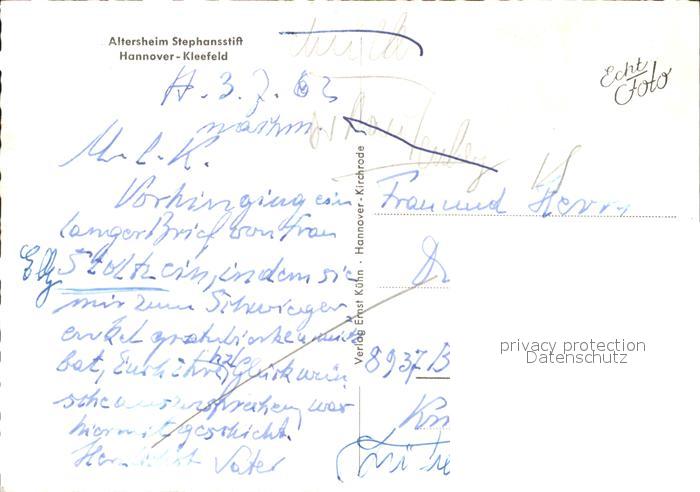 Altersheim Stephansstift
Hannover-Kleefeld
Echt
Foto
H. 3.7.62
nachm.
M. l. K.
Vorhin ging ein
langer Brief von Frau
Elly Stoltz ein, in dem sie
mir zum Schwieger
enkel gratulierte u. mich
bat, Euch ihre Glückwün
sche auszusprechen, was
hiermit geschieht.
Vater
Verlag Ernst Kühn · Hannover-Kirchrode
Frau und Herrn
Dr
8937 B
privacy protection
Datenschutz